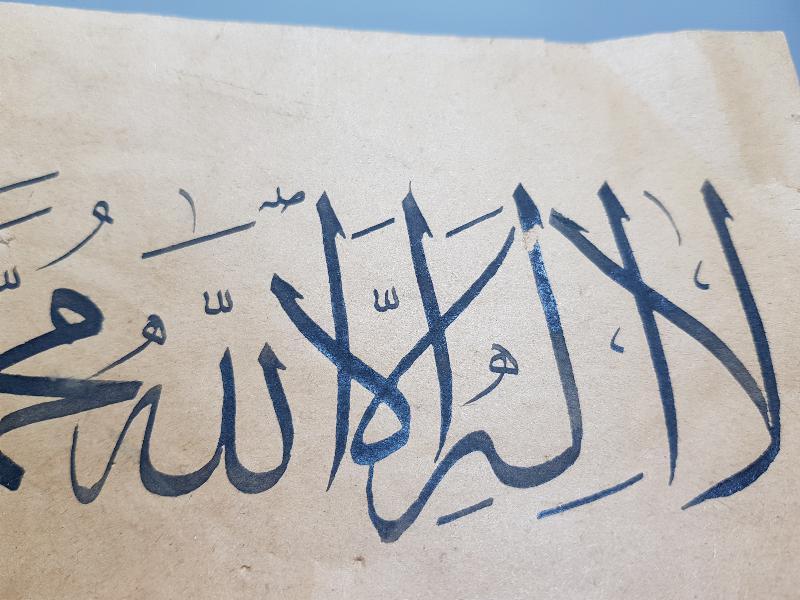 لَا إِلٰهَ إِلَّا اللّٰهُ مُحَمَّ